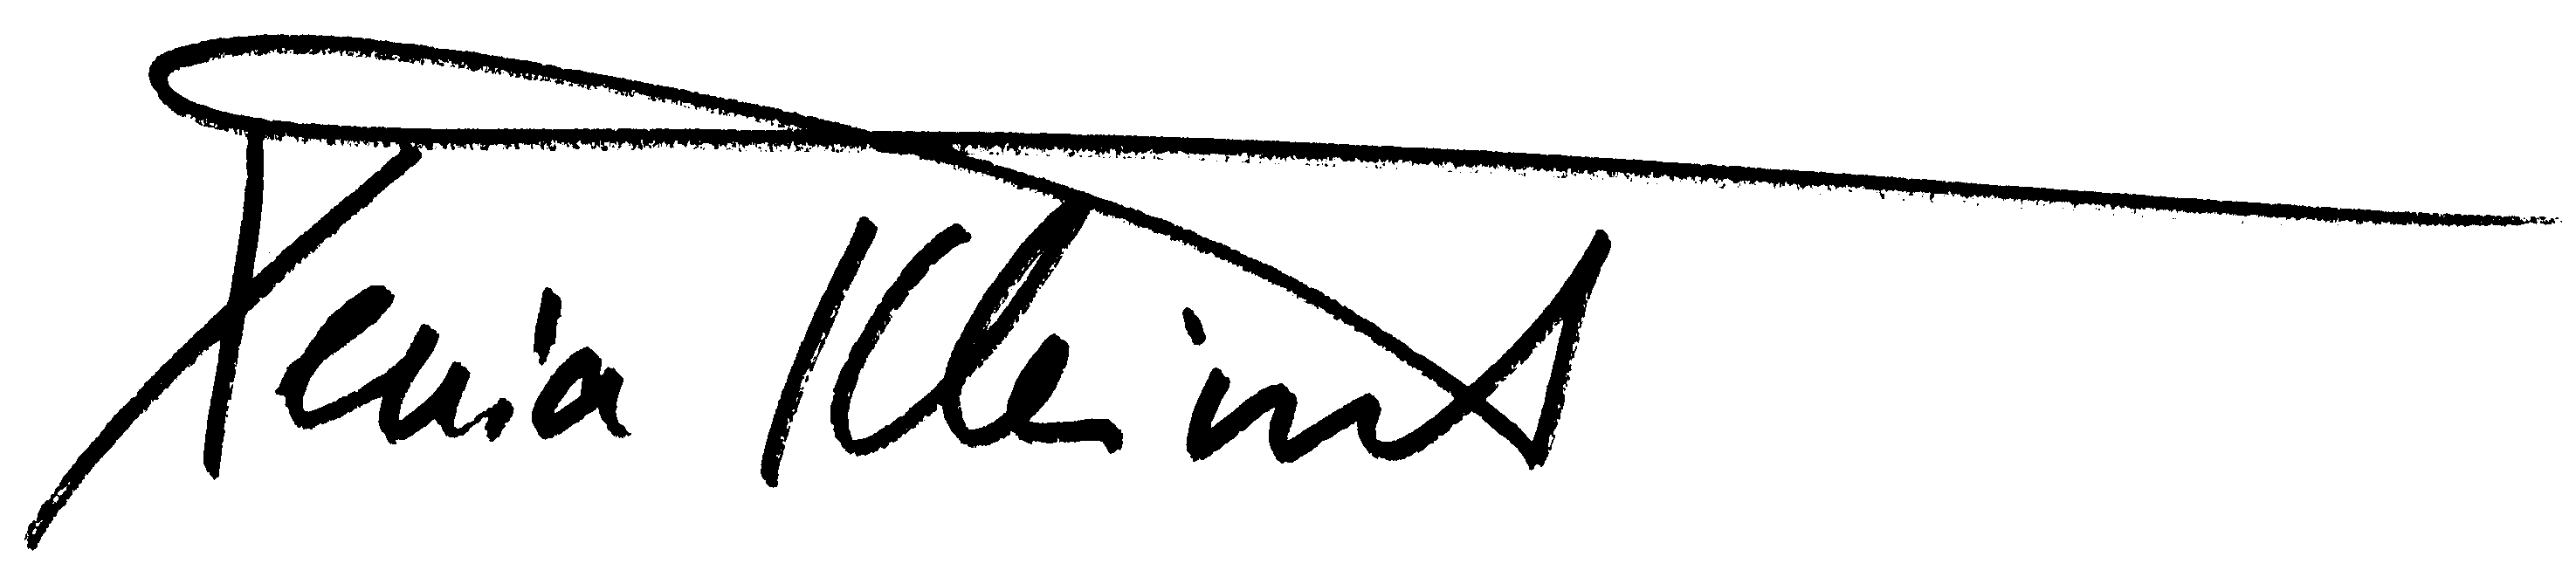 Xenia Kleinert